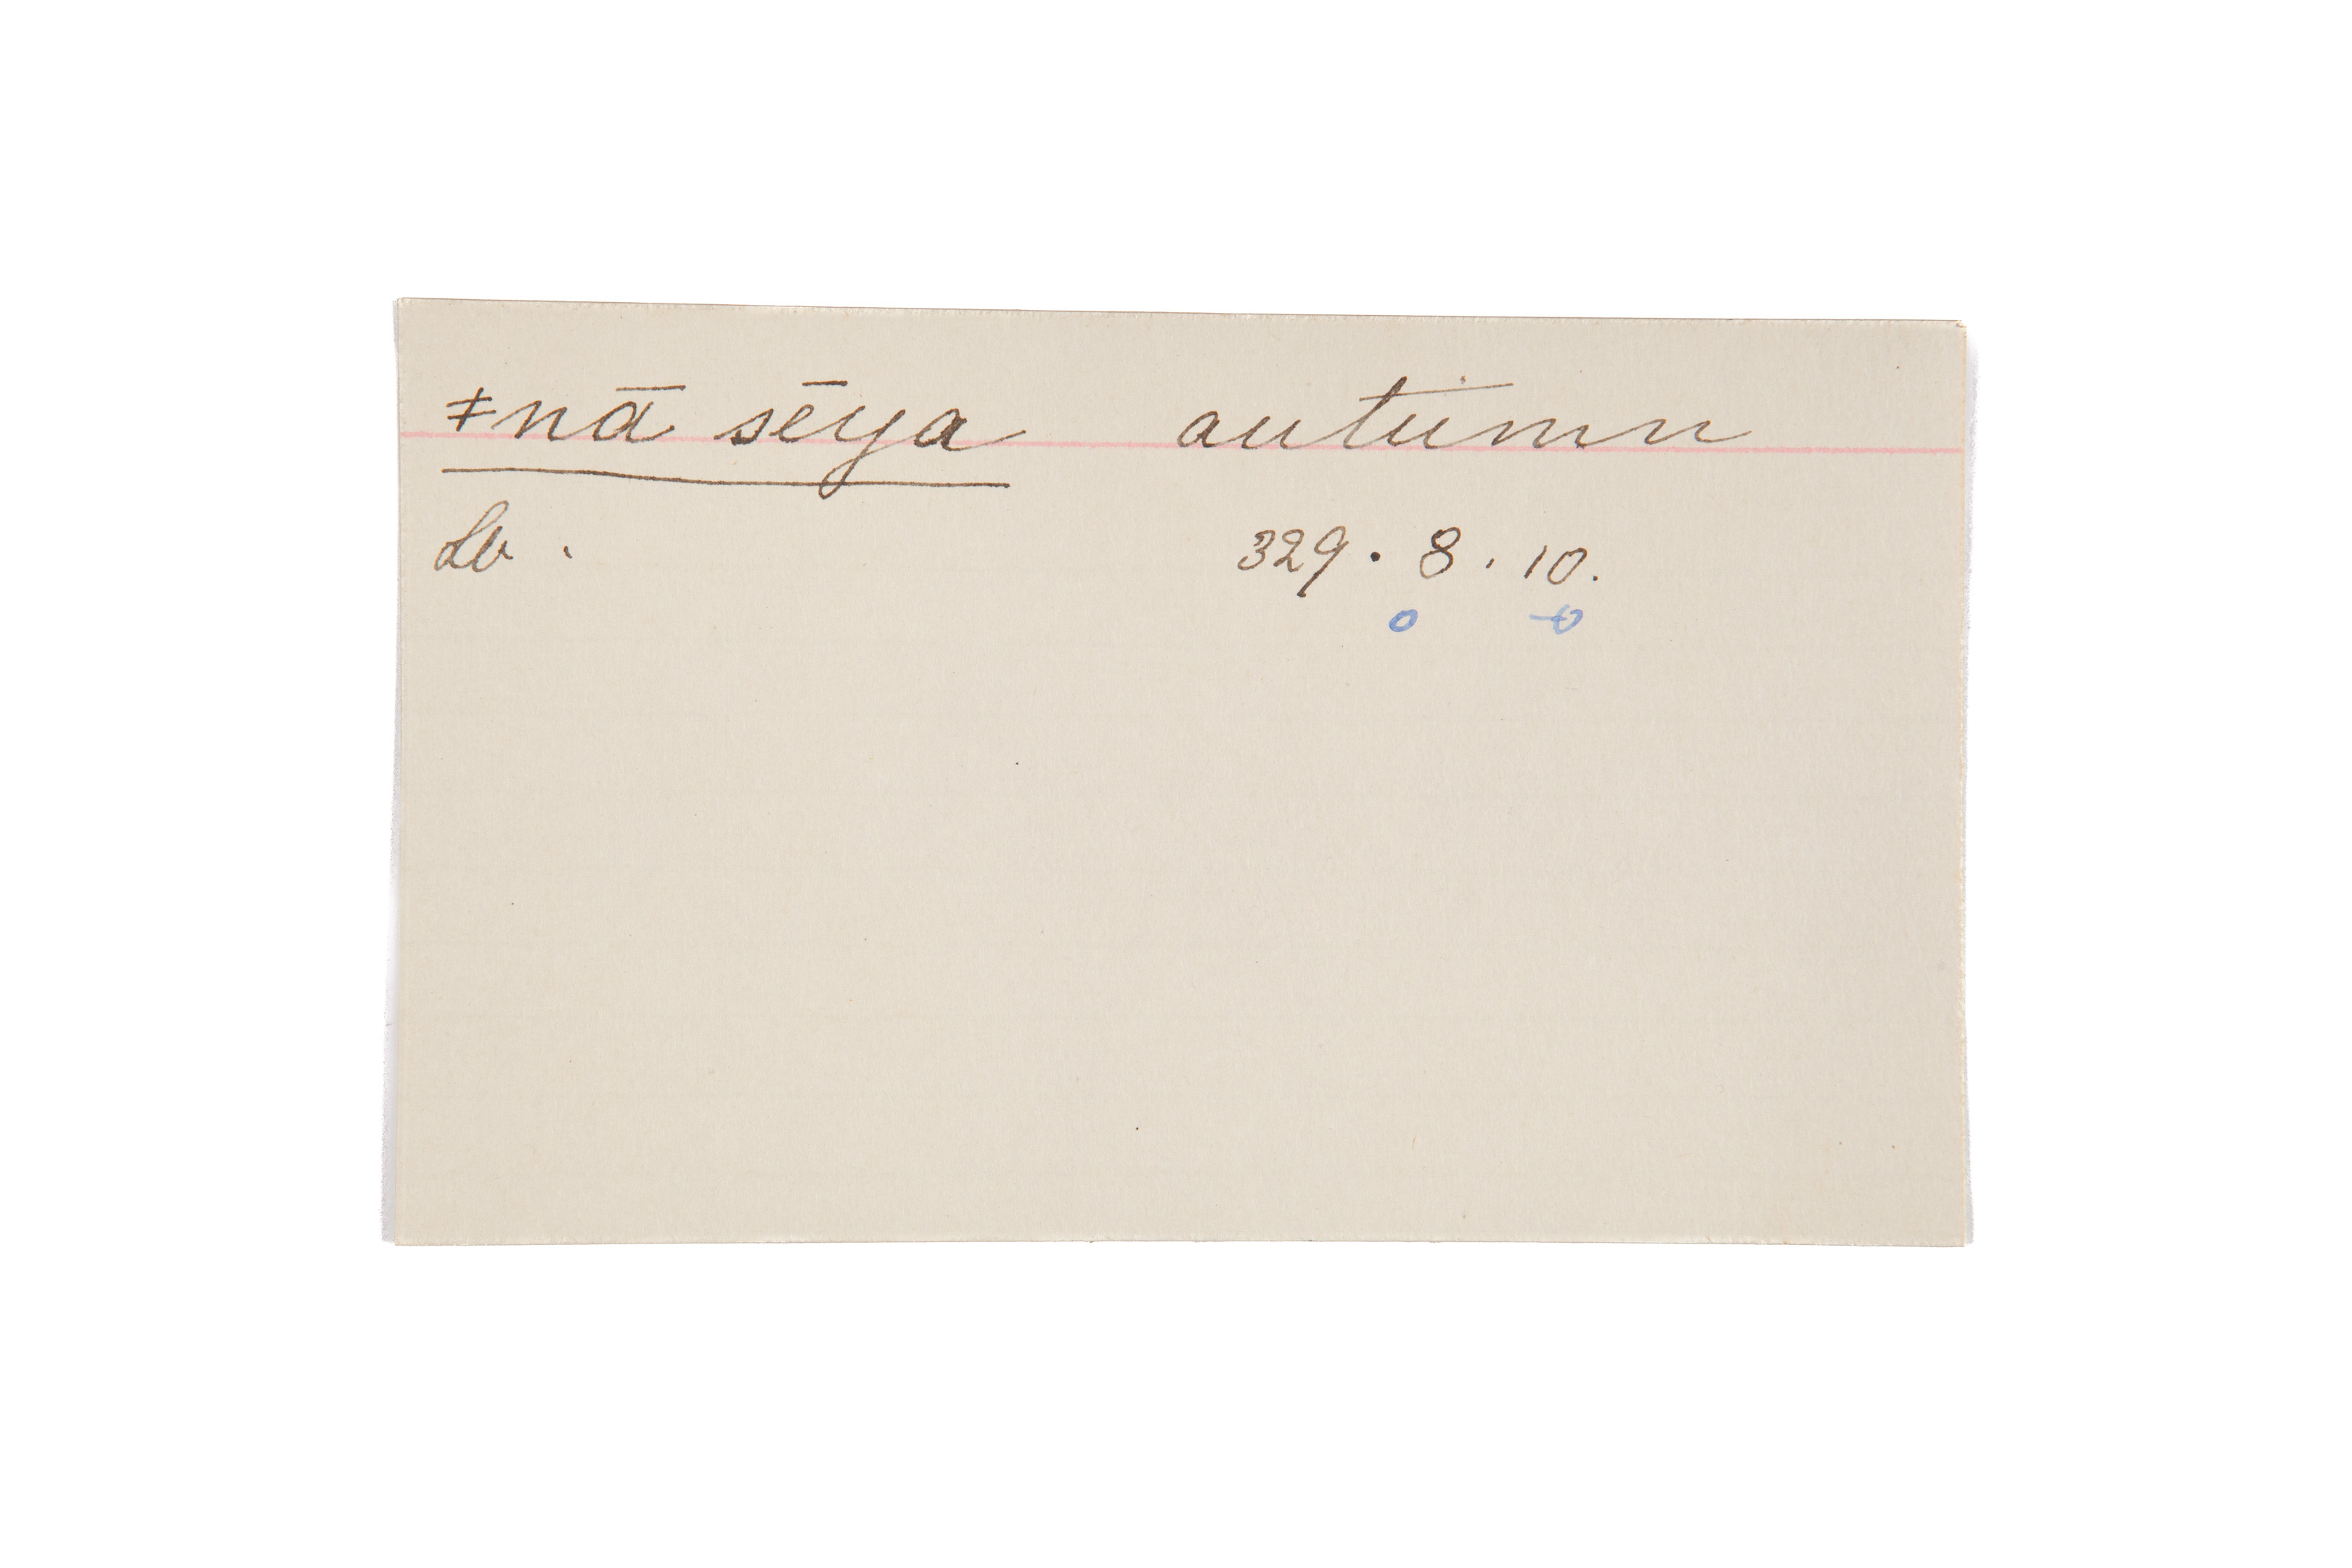 ǂnā sēya autumn
Lb. 329. 8. 10.
o o